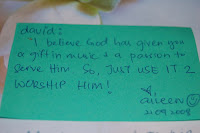 david:
"I believe God has given you
a gift in music & a passion to
serve Him. So, JUST USE IT 2
WORSHIP HIM!
aileen
21 09 2008